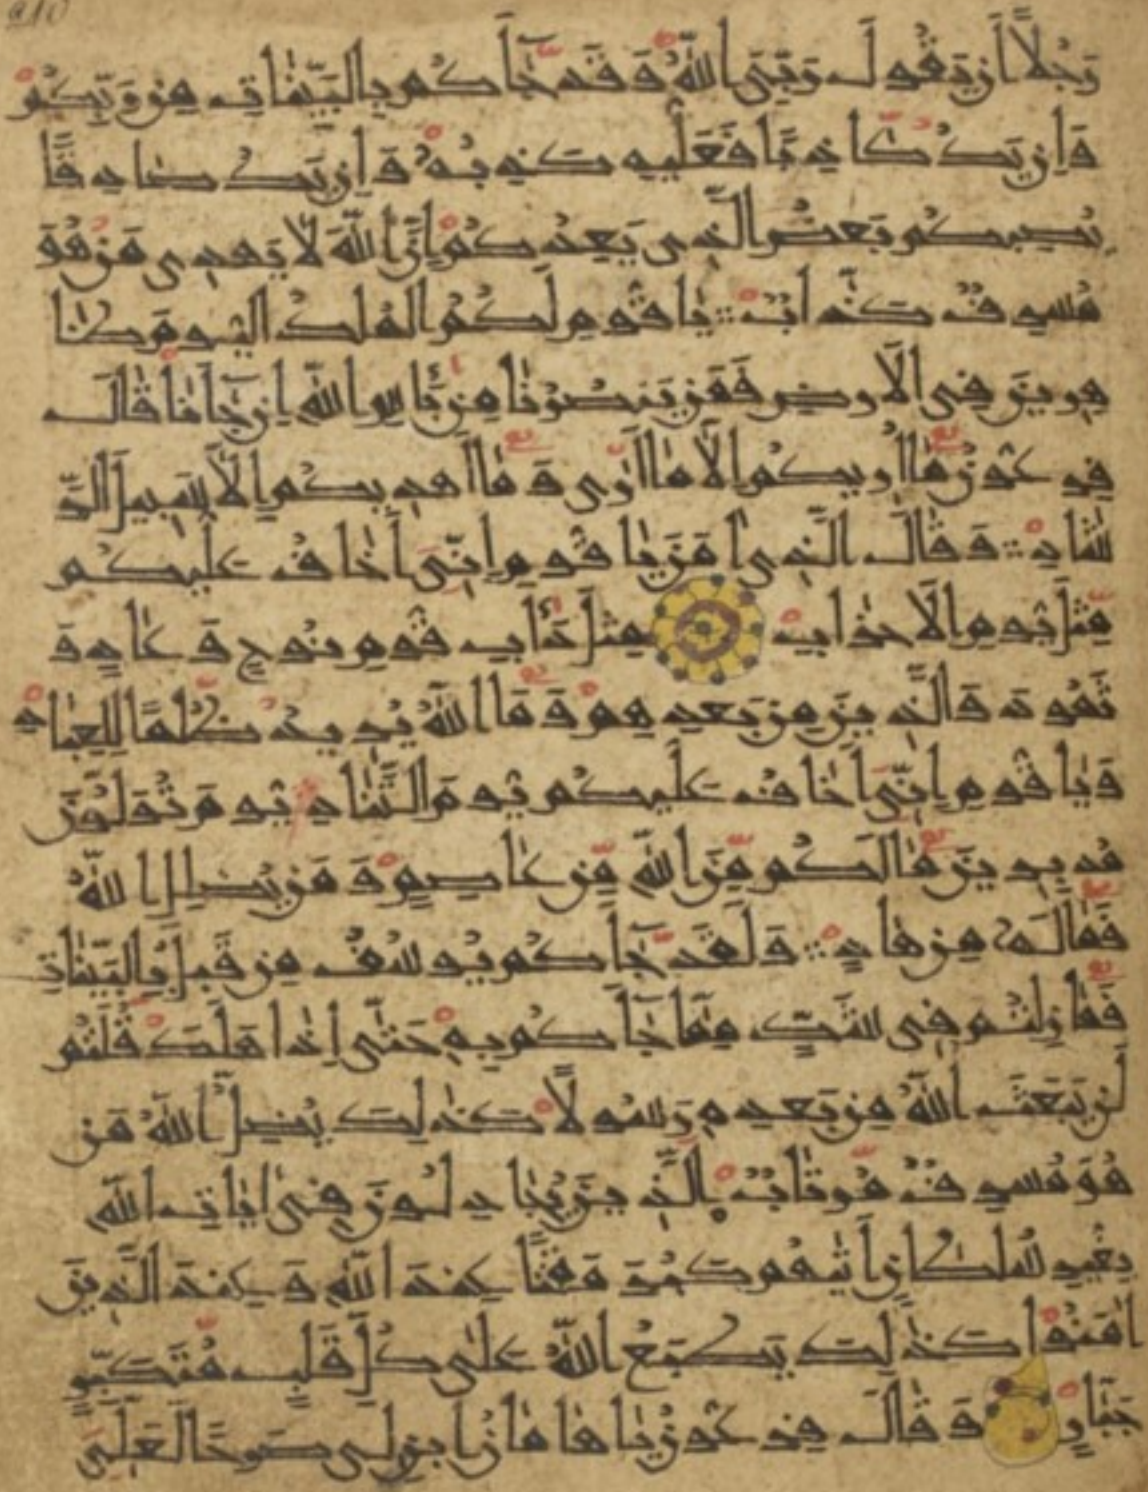 رَجُلًا أَن يَقُولَ رَبِّيَ اللَّهُ وَقَدْ جَاءَكُم بِالْبَيِّنَاتِ مِن رَّبِّكُمْ
وَإِن يَكُ كَاذِبًا فَعَلَيْهِ كَذِبُهُ وَإِن يَكُ صَادِقًا
يُصِبْكُم بَعْضُ الَّذِي يَعِدُكُمْ إِنَّ اللَّهَ لَا يَهْدِي مَنْ هُوَ
مُسْرِفٌ كَذَّابٌ يَا قَوْمِ لَكُمُ الْمُلْكُ الْيَوْمَ ظَا
هِرِينَ فِي الْأَرْضِ فَمَن يَنصُرُنَا مِن بَأْسِ اللَّهِ إِن جَاءَنَا قَالَ
فِرْعَوْنُ مَا أُرِيكُمْ إِلَّا مَا أَرَى وَمَا أَهْدِيكُمْ إِلَّا سَبِيلَ الرَّ
شَادِ وَقَالَ الَّذِي آمَنَ يَا قَوْمِ إِنِّي أَخَافُ عَلَيْكُم
مِّثْلَ يَوْمِ الْأَحْزَابِ مِثْلَ دَأْبِ قَوْمِ نُوحٍ وَعَادٍ وَ
ثَمُودَ وَالَّذِينَ مِن بَعْدِهِمْ وَمَا اللَّهُ يُرِيدُ ظُلْمًا لِلْعِبَادِ
وَيَا قَوْمِ إِنِّي أَخَافُ عَلَيْكُمْ يَوْمَ التَّنَادِ يَوْمَ تُوَلُّونَ
مُدْبِرِينَ مَا لَكُم مِّنَ اللَّهِ مِنْ عَاصِمٍ وَمَن يُضْلِلِ اللَّهُ
فَمَا لَهُ مِنْ هَادٍ وَلَقَدْ جَاءَكُمْ يُوسُفُ مِن قَبْلُ بِالْبَيِّنَاتِ
فَمَا زِلْتُمْ فِي شَكٍّ مِمَّا جَاءَكُم بِهِ حَتَّى إِذَا هَلَكَ قُلْتُمْ
لَن يَبْعَثَ اللَّهُ مِن بَعْدِهِ رَسُولًا كَذَلِكَ يُضِلُّ اللَّهُ مَنْ
هُوَ مُسْرِفٌ مُرْتَابٌ الَّذِينَ يُجَادِلُونَ فِي آيَاتِ اللَّهِ
بِغَيْرِ سُلْطَانٍ أَتَيهُمْ كَبُرَ مَقْتًا عِندَ اللَّهِ وَعِندَ الَّذِينَ
آمَنُوا كَذَلِكَ يَطْبَعُ اللَّهُ عَلَى كُلِّ قَلْبِ مُتَكَبِّرٍ
جَبَّارٍ وَقَالَ فِرْعَوْنُ يَا هَامَانُ ابْنِ لِي صَرْحًا لَعَلِّي